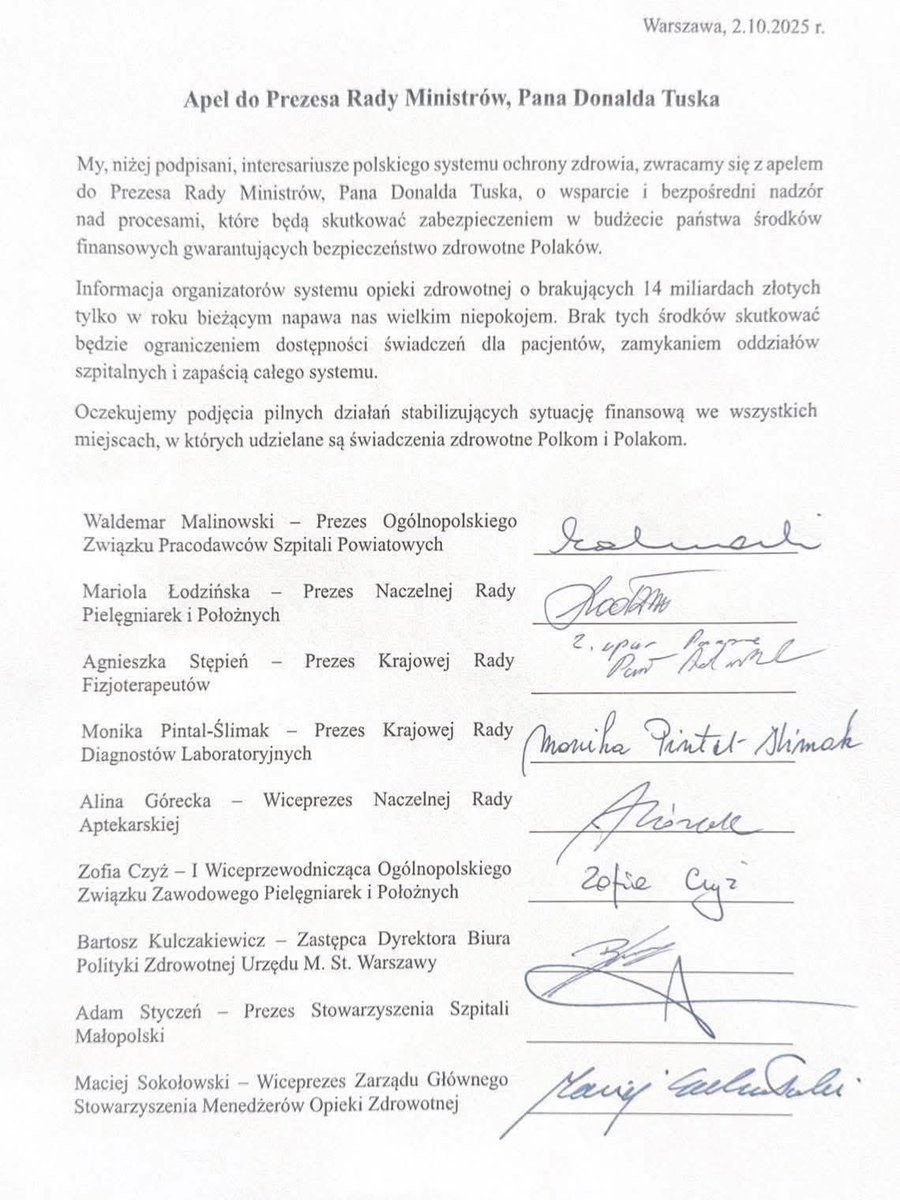 Warszawa, 2.10.2025 r.
Apel do Prezesa Rady Ministrów, Pana Donalda Tuska
My, niżej podpisani, interesariusze polskiego systemu ochrony zdrowia, zwracamy się z apelem
do Prezesa Rady Ministrów, Pana Donalda Tuska, o wsparcie i bezpośredni nadzór
nad procesami, które będą skutkować zabezpieczeniem w budżecie państwa środków
finansowych gwarantujących bezpieczeństwo zdrowotne Polaków.
Informacja organizatorów systemu opieki zdrowotnej o brakujących 14 miliardach złotych
tylko w roku bieżącym napawa nas wielkim niepokojem. Brak tych środków skutkować
będzie ograniczeniem dostępności świadczeń dla pacjentów, zamykaniem oddziałów
szpitalnych i zapaścią całego systemu.
Oczekujemy podjęcia pilnych działań stabilizujących sytuację finansową we wszystkich
miejscach, w których udzielane są świadczenia zdrowotne Polkom i Polakom.
Waldemar Malinowski – Prezes Ogólnopolskiego
Związku Pracodawców Szpitali Powiatowych
Mariola Łodzińska – Prezes Naczelnej Rady
Pielęgniarek i Położnych
Agnieszka Stępień – Prezes Krajowej Rady
Fizjoterapeutów
Monika Pintal-Ślimak – Prezes Krajowej Rady
Diagnostów Laboratoryjnych
Monika Pintal-Slimak
Alina Górecka – Wiceprezes Naczelnej Rady
Aptekarskiej
Zofia Czyż – I Wiceprzewodnicząca Ogólnopolskiego
Związku Zawodowego Pielęgniarek i Położnych
Zofia Czyż
Bartosz Kulczakiewicz – Zastępca Dyrektora Biura
Polityki Zdrowotnej Urzędu M. St. Warszawy
Adam Styczeń – Prezes Stowarzyszenia Szpitali
Małopolski
Maciej Sokołowski – Wiceprezes Zarządu Głównego
Stowarzyszenia Menedżerów Opieki Zdrowotnej